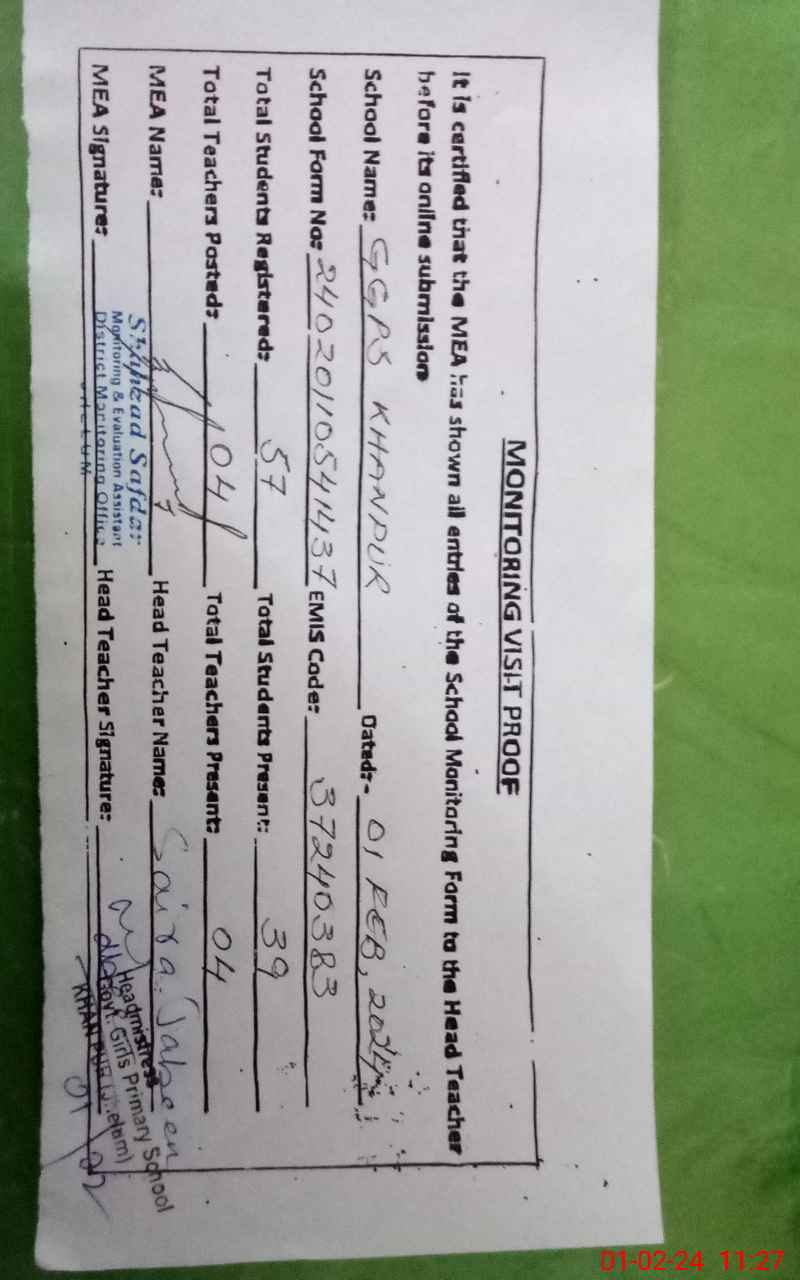 MONITORING VISIT PROOF
It is certified that the MEA has shown all entries of the School Monitoring Form to the Head Teacher
before its online submission
School Name: GGPS KHANPUR Dated:- 01 FEB, 2024
School Form No: 2402011054 1437 EMIS Code: 37240383
Total Students Registered: 57 Total Students Present: 39
Total Teachers Posted: 04 Total Teachers Present: 04
MEA Name: Head Teacher Name: Saira Jabeen
Shahzad Safdar
Monitoring & Evaluation Assistant
District Monitoring Office
JHELUM
MEA Signature: Head Teacher Signature:
Headmistress
Govt. Girls Primary School
KHAN PUR (Jhelum)
01-02-24 11:27